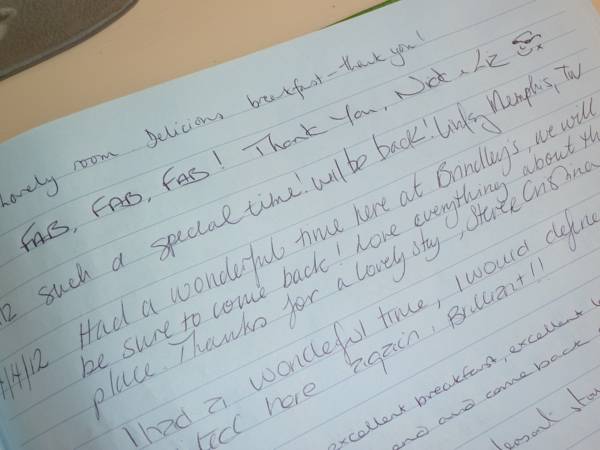 Lovely room. Delicious breakfast - thank you!
FAB, FAB, FAB! Thank You, Nick + Liz x
12 Such a special time! will be back! Memphis, TN
Had a wonderful time here at Brindley's, we will
be sure to come back! Love everything about th
place. Thanks for a lovely stay, Steve Cristina
4/12
I had a wonderful time, I would define
here again. Brilliant!!
excellent breakfast, excellent
and come back